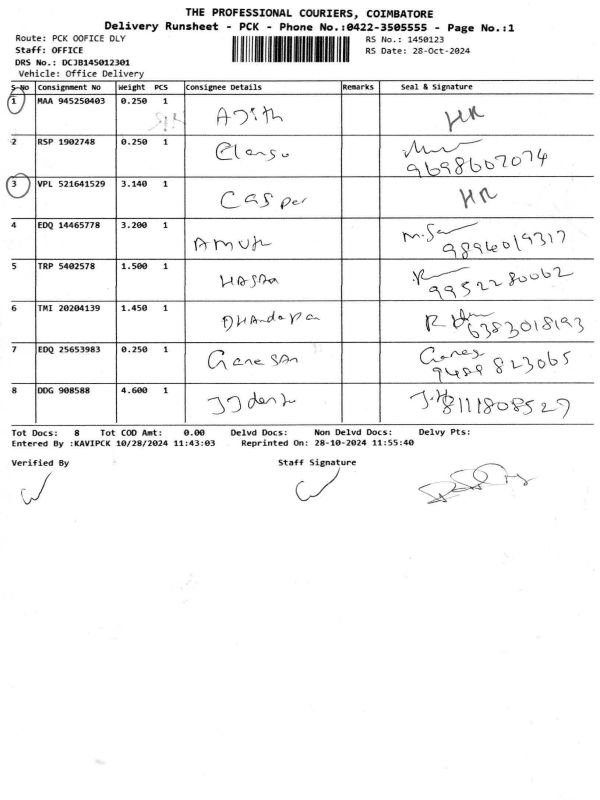 THE PROFESSIONAL COURIERS, COIMBATORE
Delivery Runsheet - PCK - Phone No.:0422-3505555 - Page No.:1
Route: PCK OOFICE DLY RS No.: 1450123
Staff: OFFICE RS Date: 28-Oct-2024
DRS No.: DCJB145012301
Vehicle: Office Delivery
S-No Consignment No Weight PCS Consignee Details Remarks Seal & Signature
1 MAA 945250403 0.250 1 AJith HR
2 RSP 1902748 0.250 1 9698607074
3 VPL 521641529 3.140 1 Casper HR
4 EDQ 14465778 3.200 1 9894019317
5 TRP 5402578 1.500 1 HASAN 9952280062
6 TMI 20204139 1.450 1 DHAndapan 6383018193
7 EDQ 25653983 0.250 1 GaneSan Ganes 9489823065
8 DDG 908588 4.600 1 8111808527
Tot Docs: 8 Tot COD Amt: 0.00 Delvd Docs: Non Delvd Docs: Delvy Pts:
Entered By :KAVIPCK 10/28/2024 11:43:03 Reprinted On: 28-10-2024 11:55:40
Verified By Staff Signature